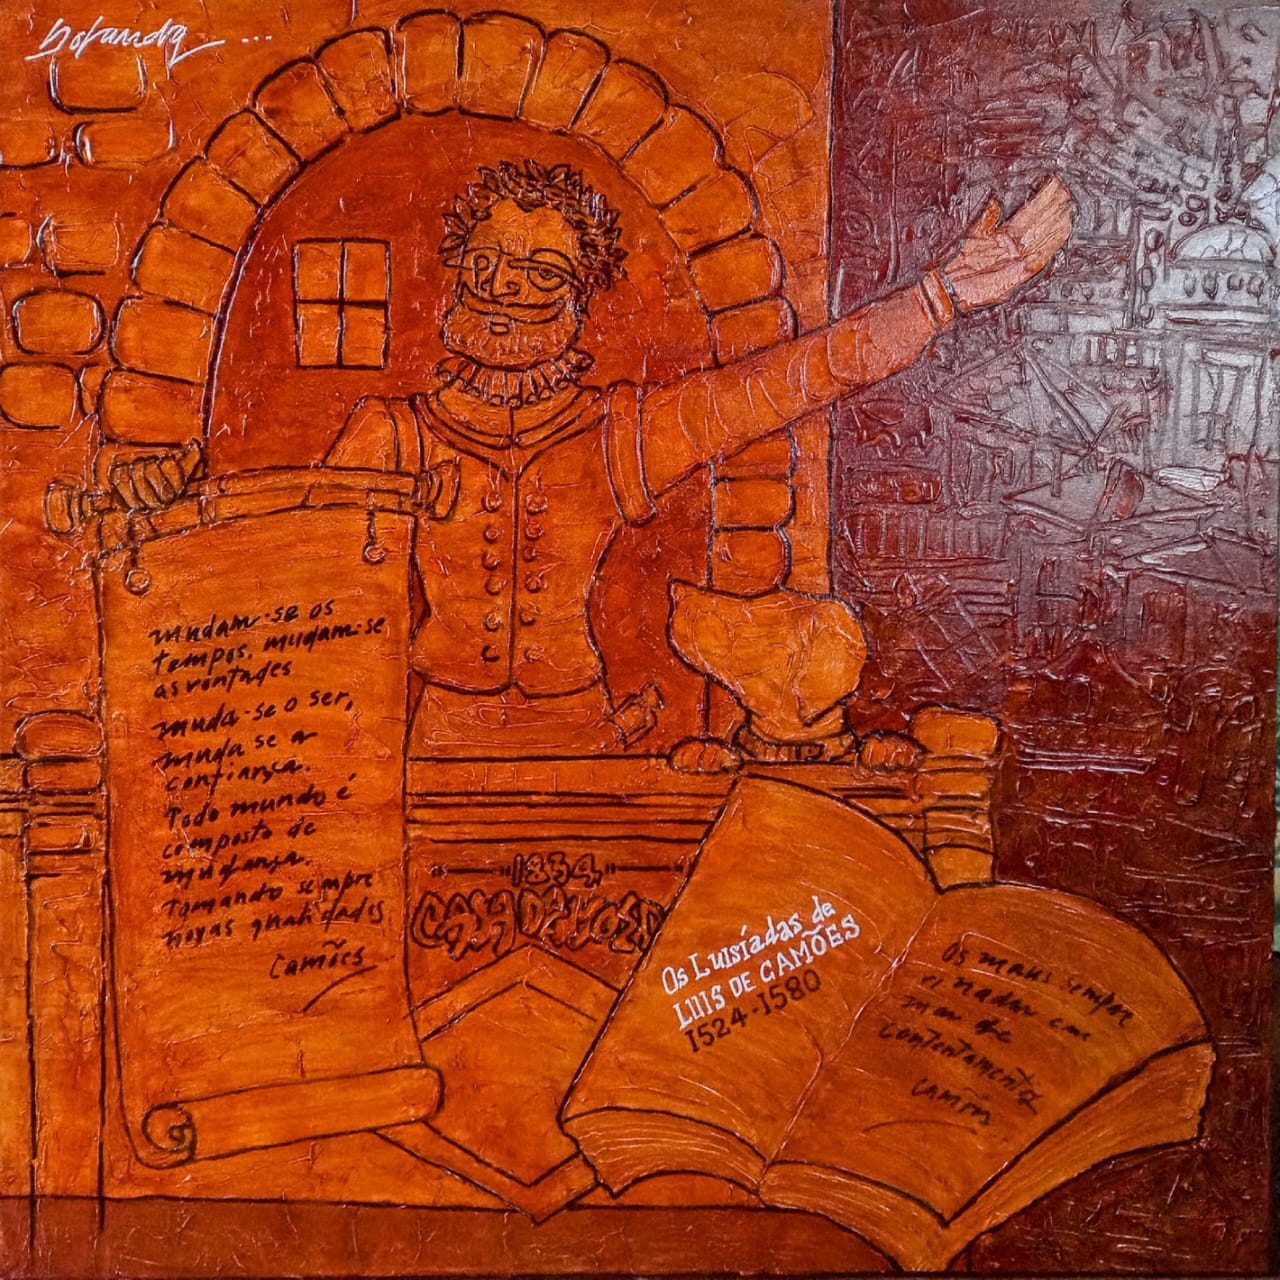 mudam-se os
tempos, mudam-se
as vontades
muda-se o ser,
muda se a
confiança.
Todo mundo é
composto de
mudança.
Tomando sempre
novas qualidades
Camões
"1834"
CASA DA
Os Luisíadas de
LUIS DE CAMÕES
1524-1580
Os maus sempre
vi nadar em
mar de
contentamento
Camões